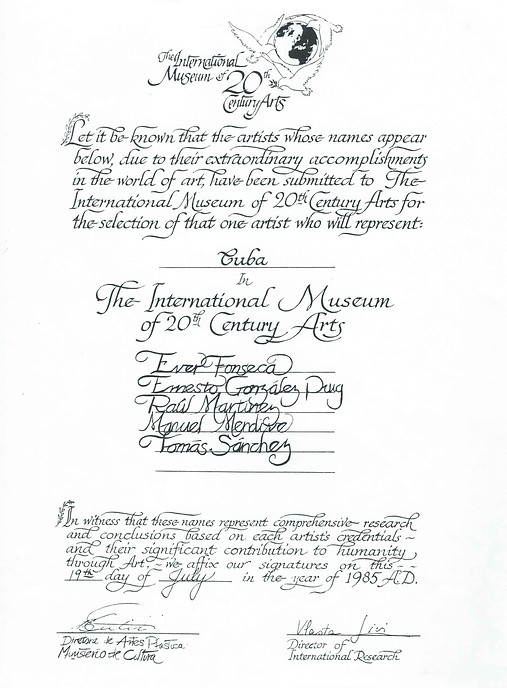 The International
Museum of 20th
Century Arts
Let it be known that the artists whose names appear
below, due to their extraordinary accomplishments
in the world of art, have been submitted to The
International Museum of 20th Century Arts for
the selection of that one artist who will represent:
Cuba
In
The International Museum
of 20th Century Arts
Ever Fonseca
Ernesto González Puig
Raúl Martínez
Manuel Mendive
Tomás Sánchez
In witness that these names represent comprehensive research
and conclusions based on each artist's credentials ~
and their significant contribution to humanity
through Art, ~ we affix our signatures on this ~ ~
19th day of July in the year of 1985 A.D.
Directora de Artes Plastica
Ministerio de Cultura
Vlasta
Director of
International Research